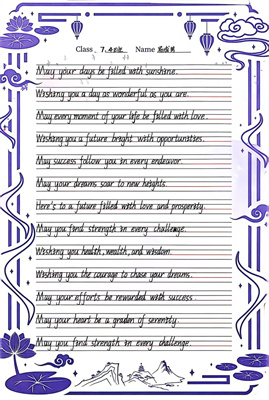 Class. 7. Name
May your days be filled with sunshine.
Wishing you a day as wonderful as you are.
May every moment of your life be filled with love.
Wishing you a future bright with opportunities.
May success follow you in every endeavor.
May your dreams soar to new heights.
Here's to a future filled with love and prosperity.
May you find strength in every challenge.
Wishing you health, wealth, and wisdom.
Wishing you the courage to chase your dreams.
May your efforts be rewarded with success.
May your heart be a garden of serenity.
May you find strength in every challenge.